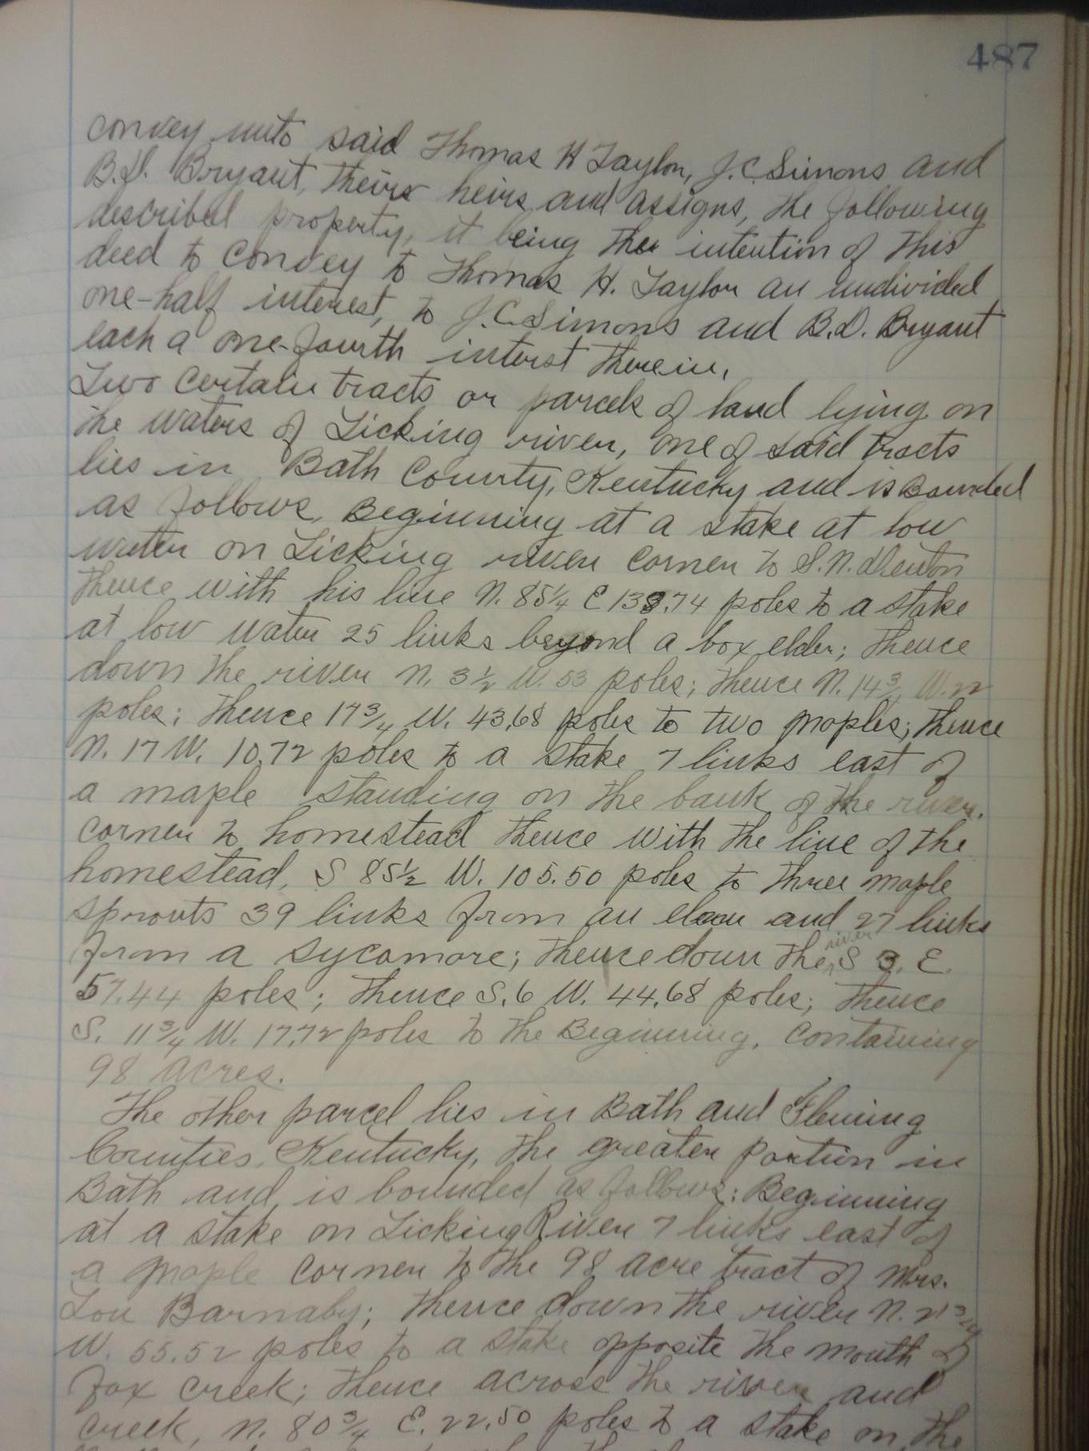 487
convey unto said Thomas H Taylor, J.C. Simons and
B.D. Bryant, theirs heirs and assigns, the following
described property, it being the intention of this
deed to convey to Thomas H. Taylor an undivided
one-half interest, to J.C. Simons and B.D. Bryant
each a one-fourth interst therein,
Two certain tracts or parcels of land lying on
the waters of Licking river, one of said tracts
lies in Bath County, Kentucky and is Bounded
as follows, Beginning at a stake at low
water on Licking river corner to S.N.
thence with his line N. 85¼ E 138.74 poles to a stake
at low water 25 links beyond a box elder; thence
down the river N. 3½ W. 53 poles; thence N. 14¾ W. 22
poles; thence 17¾ W. 43.68 poles to two maples; thence
N. 17 W. 10.72 poles to a stake 7 links east of
a maple standing on the bank of the river.
corner to homestead thence with the line of the
homestead, S 85½ W. 105.50 poles to three maple
sprouts 39 links from an elm and 27 links
from a sycamore; thence down the river S 3. E.
57.44 poles; thence S. 6 W. 44.68 poles; thence
S. 11¾ W. 17.72 poles to the Beginning. Containing
98 acres.
The other parcel lies in Bath and Fleming
Counties, Kentucky, the greater portion in
Bath and is bounded as follows: Beginning
at a stake on Licking River 7 links east of
a maple corner to the 98 acre tract of Mrs.
Lou Barnaby; thence down the river N. 21¾
W. 55.52 poles to a stake opposite the mouth of
Fox creek; thence across the river and
creek, N. 80¾ E. 22.50 poles to a stake on the